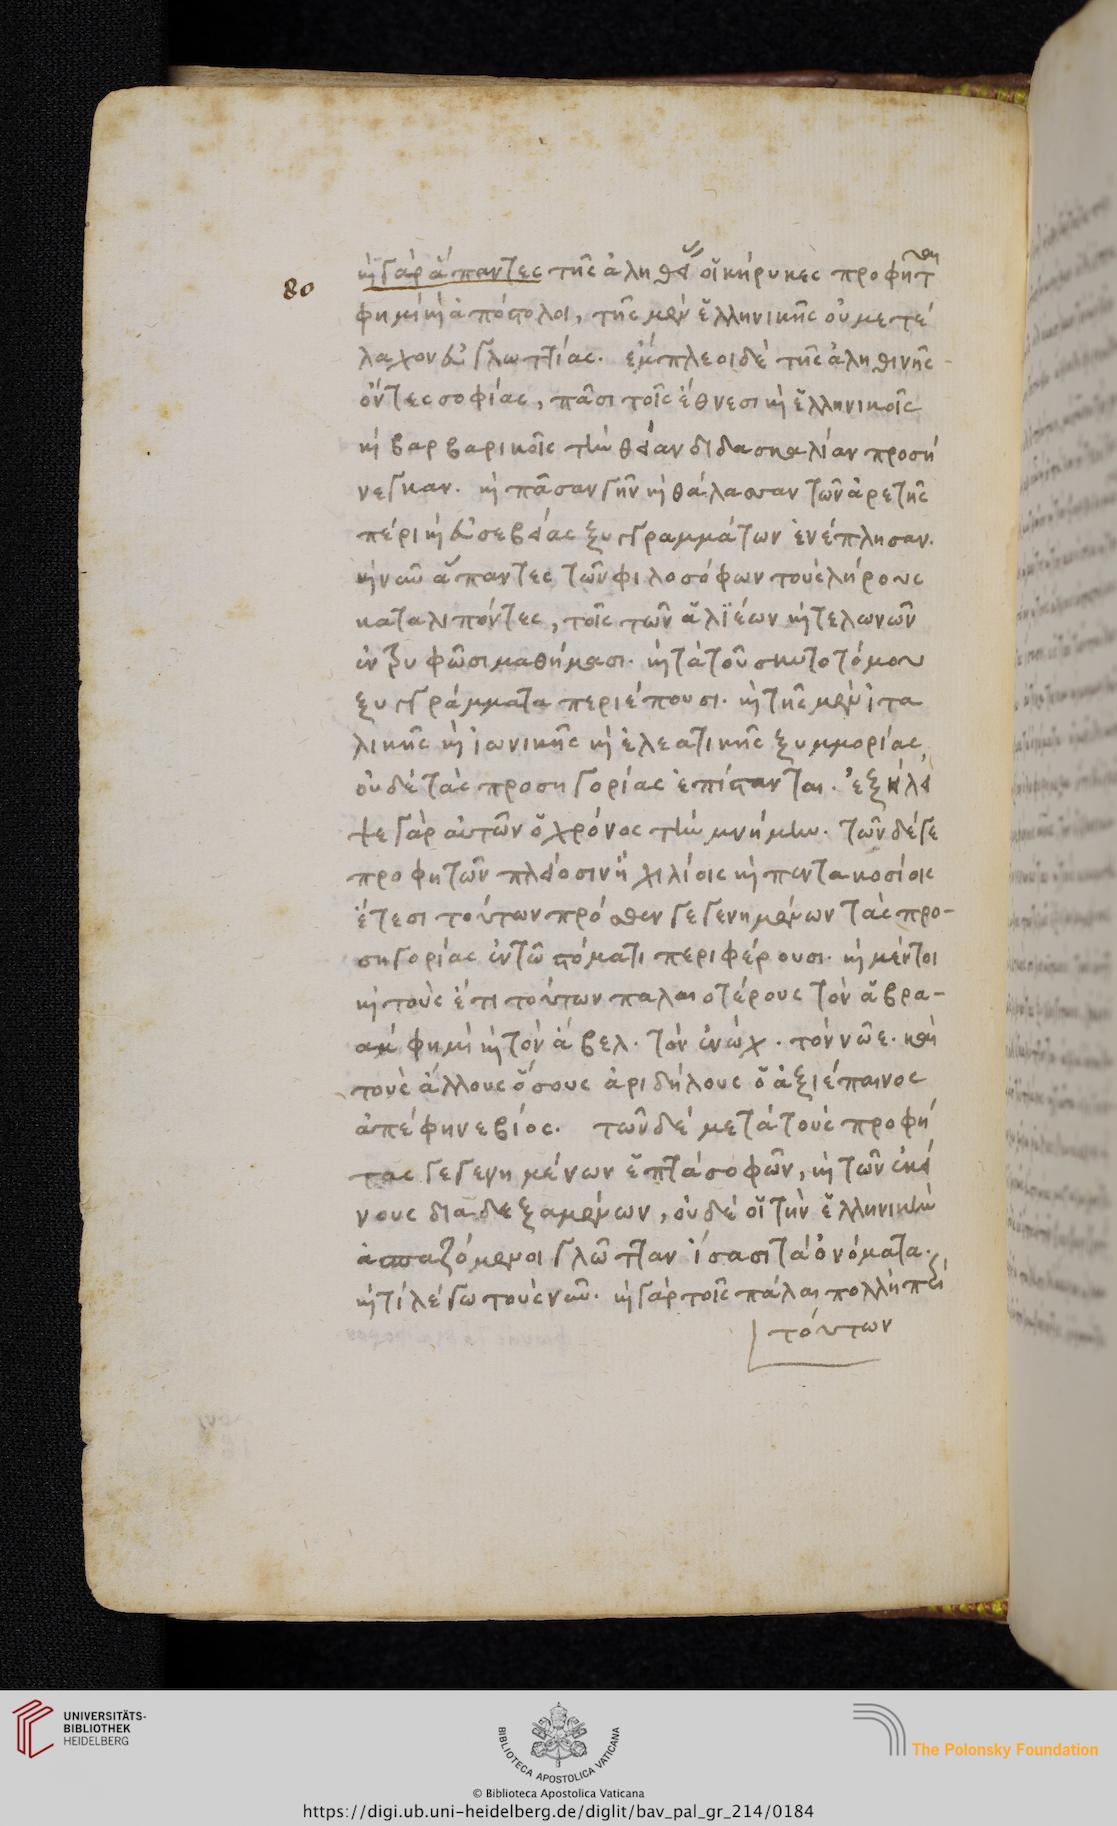 80
καὶ γὰρ ἅπαντες τῆς ἀληθείας οἱ κήρυκες προφῆται
φημὶ καὶ ἀπόστολοι, τῆς μὲν ἑλληνικῆς οὐ μετέ
λαχον εὐγλωττίας. ἔμπλεοι δὲ τῆς ἀληθινῆς
ὄντες σοφίας, πᾶσι τοῖς ἔθνεσι καὶ ἑλληνικοῖς
καὶ βαρβαρικοῖς τὴν θείαν διδασκαλίαν προσή
νεγκαν. καὶ πᾶσαν γῆν καὶ θάλασσαν τῶν ἀρετῆς
πέρι καὶ εὐσεβείας ξυγγραμμάτων ἐνέπλησαν.
καὶ νῦν ἅπαντες τῶν φιλοσόφων τοὺς λήρους
καταλιπόντες, τοῖς τῶν ἁλϊέων καὶ τελωνῶν
ἐντρυφῶσι μαθήμασι. καὶ τὰ τοῦ σκυτοτόμου
ξυγγράμματα περιέπουσι. καὶ τῆς μὲν ἰτα
λικῆς καὶ ἰωνικῆς καὶ ἐλεατικῆς ξυμμορίας,
οὐδὲ τὰς προσηγορίας ἐπίστανται. ἐξήλει
ψε γὰρ αὐτῶν ὁ χρόνος τὴν μνήμην. τῶν δέ γε
προφητῶν πλείοσιν ἢ χιλίοις καὶ πεντακοσίοις
ἔτεσι τούτων πρόσθεν γεγενημένων τὰς προ-
σηγορίας ἐν τῶ στόματι περιφέρουσι. καὶ μέντοι
καὶ τοὺς ἔτι τούτων παλαιοτέρους τὸν ἄβρα-
αμ φημὶ καὶ τὸν ἄβελ. τὸν ἐνώχ. τὸν νῶε. καὶ
τοὺς ἄλλους ὅσους ἀριδήλους ὁ ἀξιέπαινος
ἀπέφηνε βίος. τῶν δὲ μετὰ τοὺς προφή
τας γεγενημένων ἑπτὰ σοφῶν, καὶ τῶν ἐκεί
νους διαδεξαμένων, οὐδὲ οἱ τὴν ἑλληνικὴν
ἀσπαζόμενοι γλῶτταν ἴσασι τὰ ὀνόματα.
καὶ τί λέγω τοὺς νῦν. καὶ γὰρ τοῖς πάλαι πολλὴ περὶ
τούτων
UNIVERSITÄTS-
BIBLIOTHEK
HEIDELBERG
BIBLIOTECA APOSTOLICA VATICANA
The Polonsky Foundation
© Biblioteca Apostolica Vaticana
https://digi.ub.uni-heidelberg.de/diglit/bav_pal_gr_214/0184